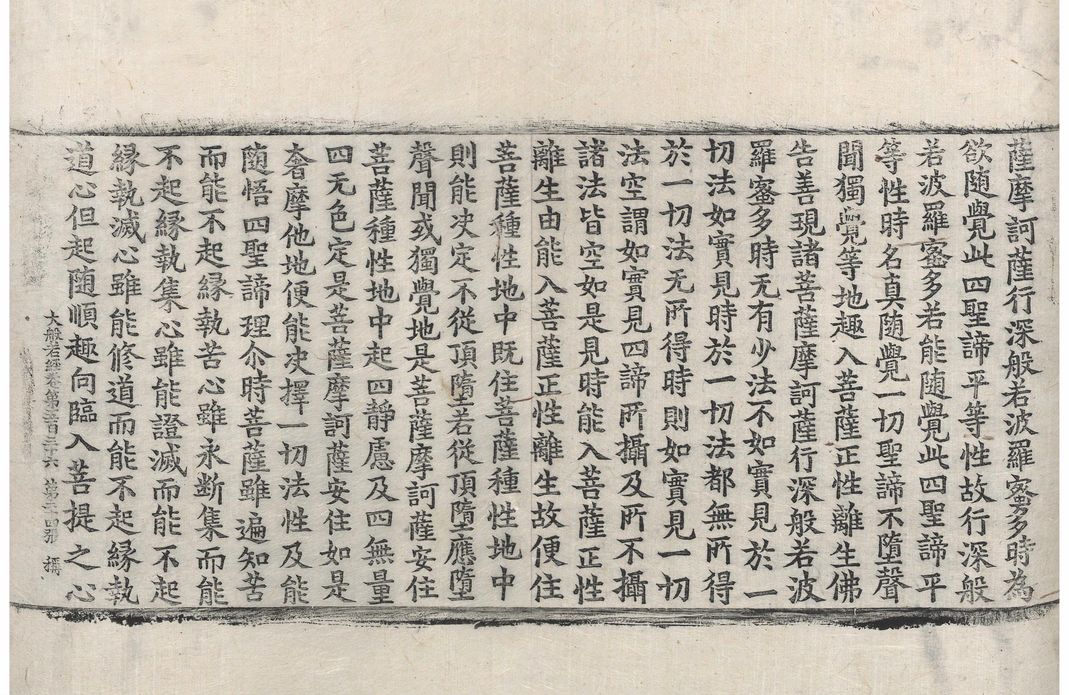 薩摩訶薩行深般若波羅蜜多時為
欲随覺此四聖諦平等性故行深般
若波羅蜜多若能随覺此四聖諦平
等性時名真随覺一切聖諦不墮聲
聞獨覺等地趣入菩薩正性離生佛
告善現諸菩薩摩訶薩行深般若波
羅蜜多時无有少法不如實見於一
切法如實見時於一切法都無所得
於一切法无所得時則如實見一切
法空謂如實見四諦所攝及所不攝
諸法皆空如是見時能入菩薩正性
離生由能入菩薩正性離生故便住
菩薩種性地中既住菩薩種性地中
則能决定不從頂墮若從頂墮應墮
聲聞或獨覺地是菩薩摩訶薩安住
菩薩種性地中起四静慮及四無量
四无色定是菩薩摩訶薩安住如是
奢摩他地便能决擇一切法性及能
随悟四聖諦理尒時菩薩雖遍知苦
而能不起縁執苦心雖永断集而能
不起縁執集心雖能證滅而能不起
縁執滅心雖能修道而能不起縁執
道心但起随順趣向臨入菩提之心
大般若經卷第五百三十六 第